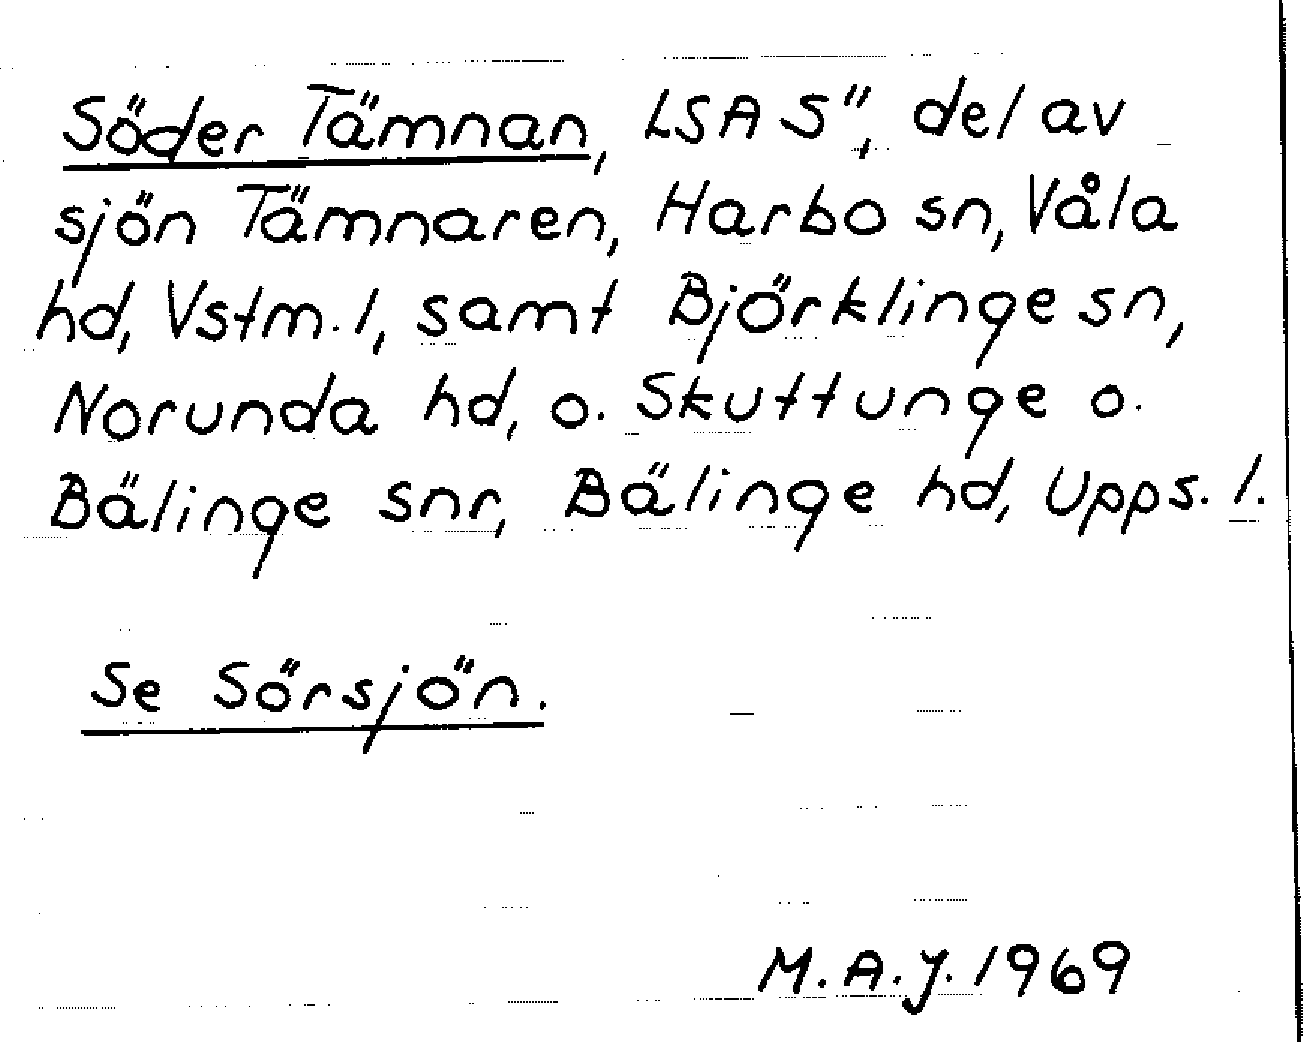 Söder Tämnan, LSA S", del av
sjön Tämnaren, Harbo sn, Våla
hd, Vstm. l, samt Björklinge sn,
Norunda hd, o. Skuttunge o.
Bälinge snr, Bälinge hd, Upps. l.
Se Sörsjön.
M.A.J. 1969